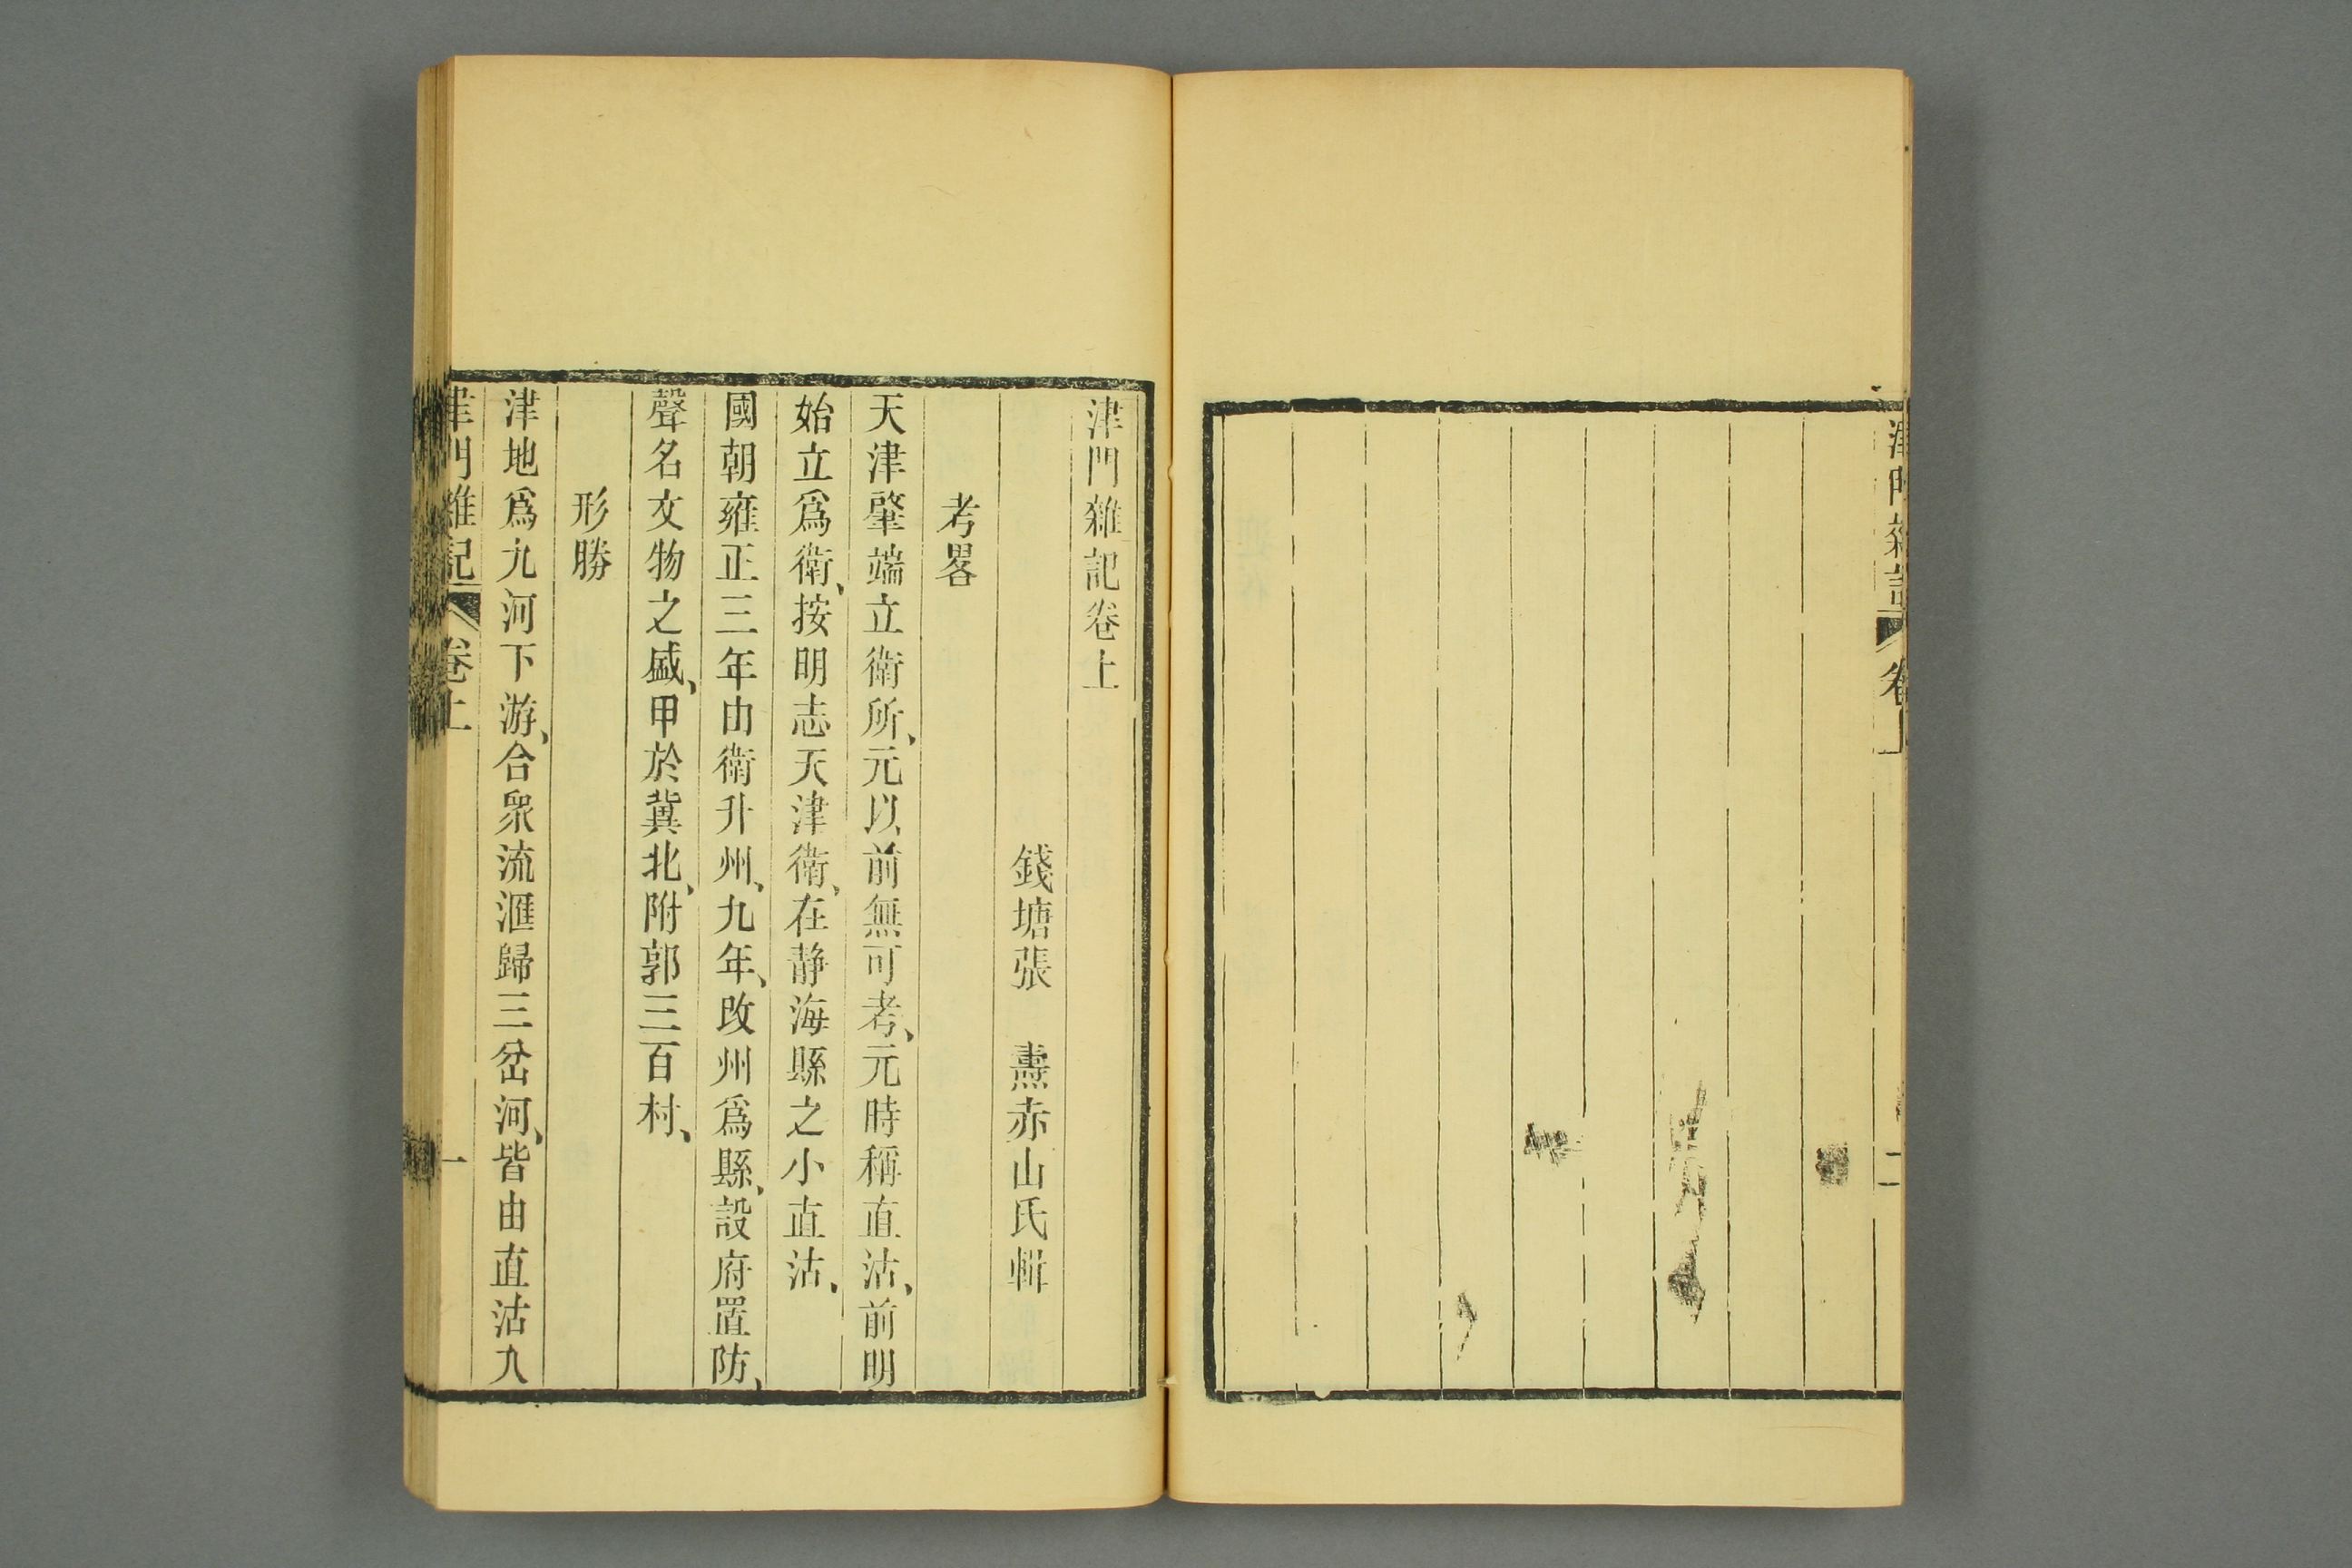 津門雜記
卷上
二
津門雜記卷上
錢塘張　燾赤山氏輯
考畧
天津肇端立衛所、元以前無可考、元時稱直沽、前明
始立爲衛、按明志天津衛、在静海縣之小直沽、
國朝雍正三年由衛升州、九年、改州爲縣、設府置防、
聲名文物之盛、甲於冀北、附郭三百村、
形勝
津地爲九河下游、合衆流滙歸三岔河、皆由直沽入
津門雜記
卷上
一